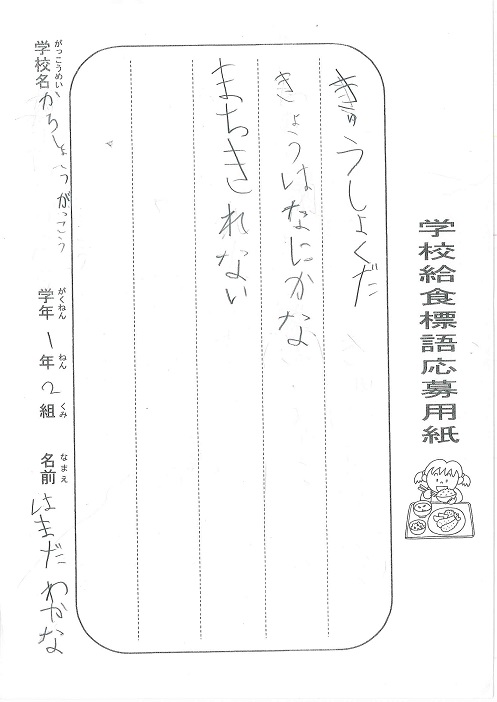 学校給食標語応募用紙
きゅうしょくだ
きょうはなにかな
まちきれない
がっこうめい
学校名 かろしょうがっこう
がくねん ねん くみ
学年 1年 2組
なまえ
名前 はまだ わかな